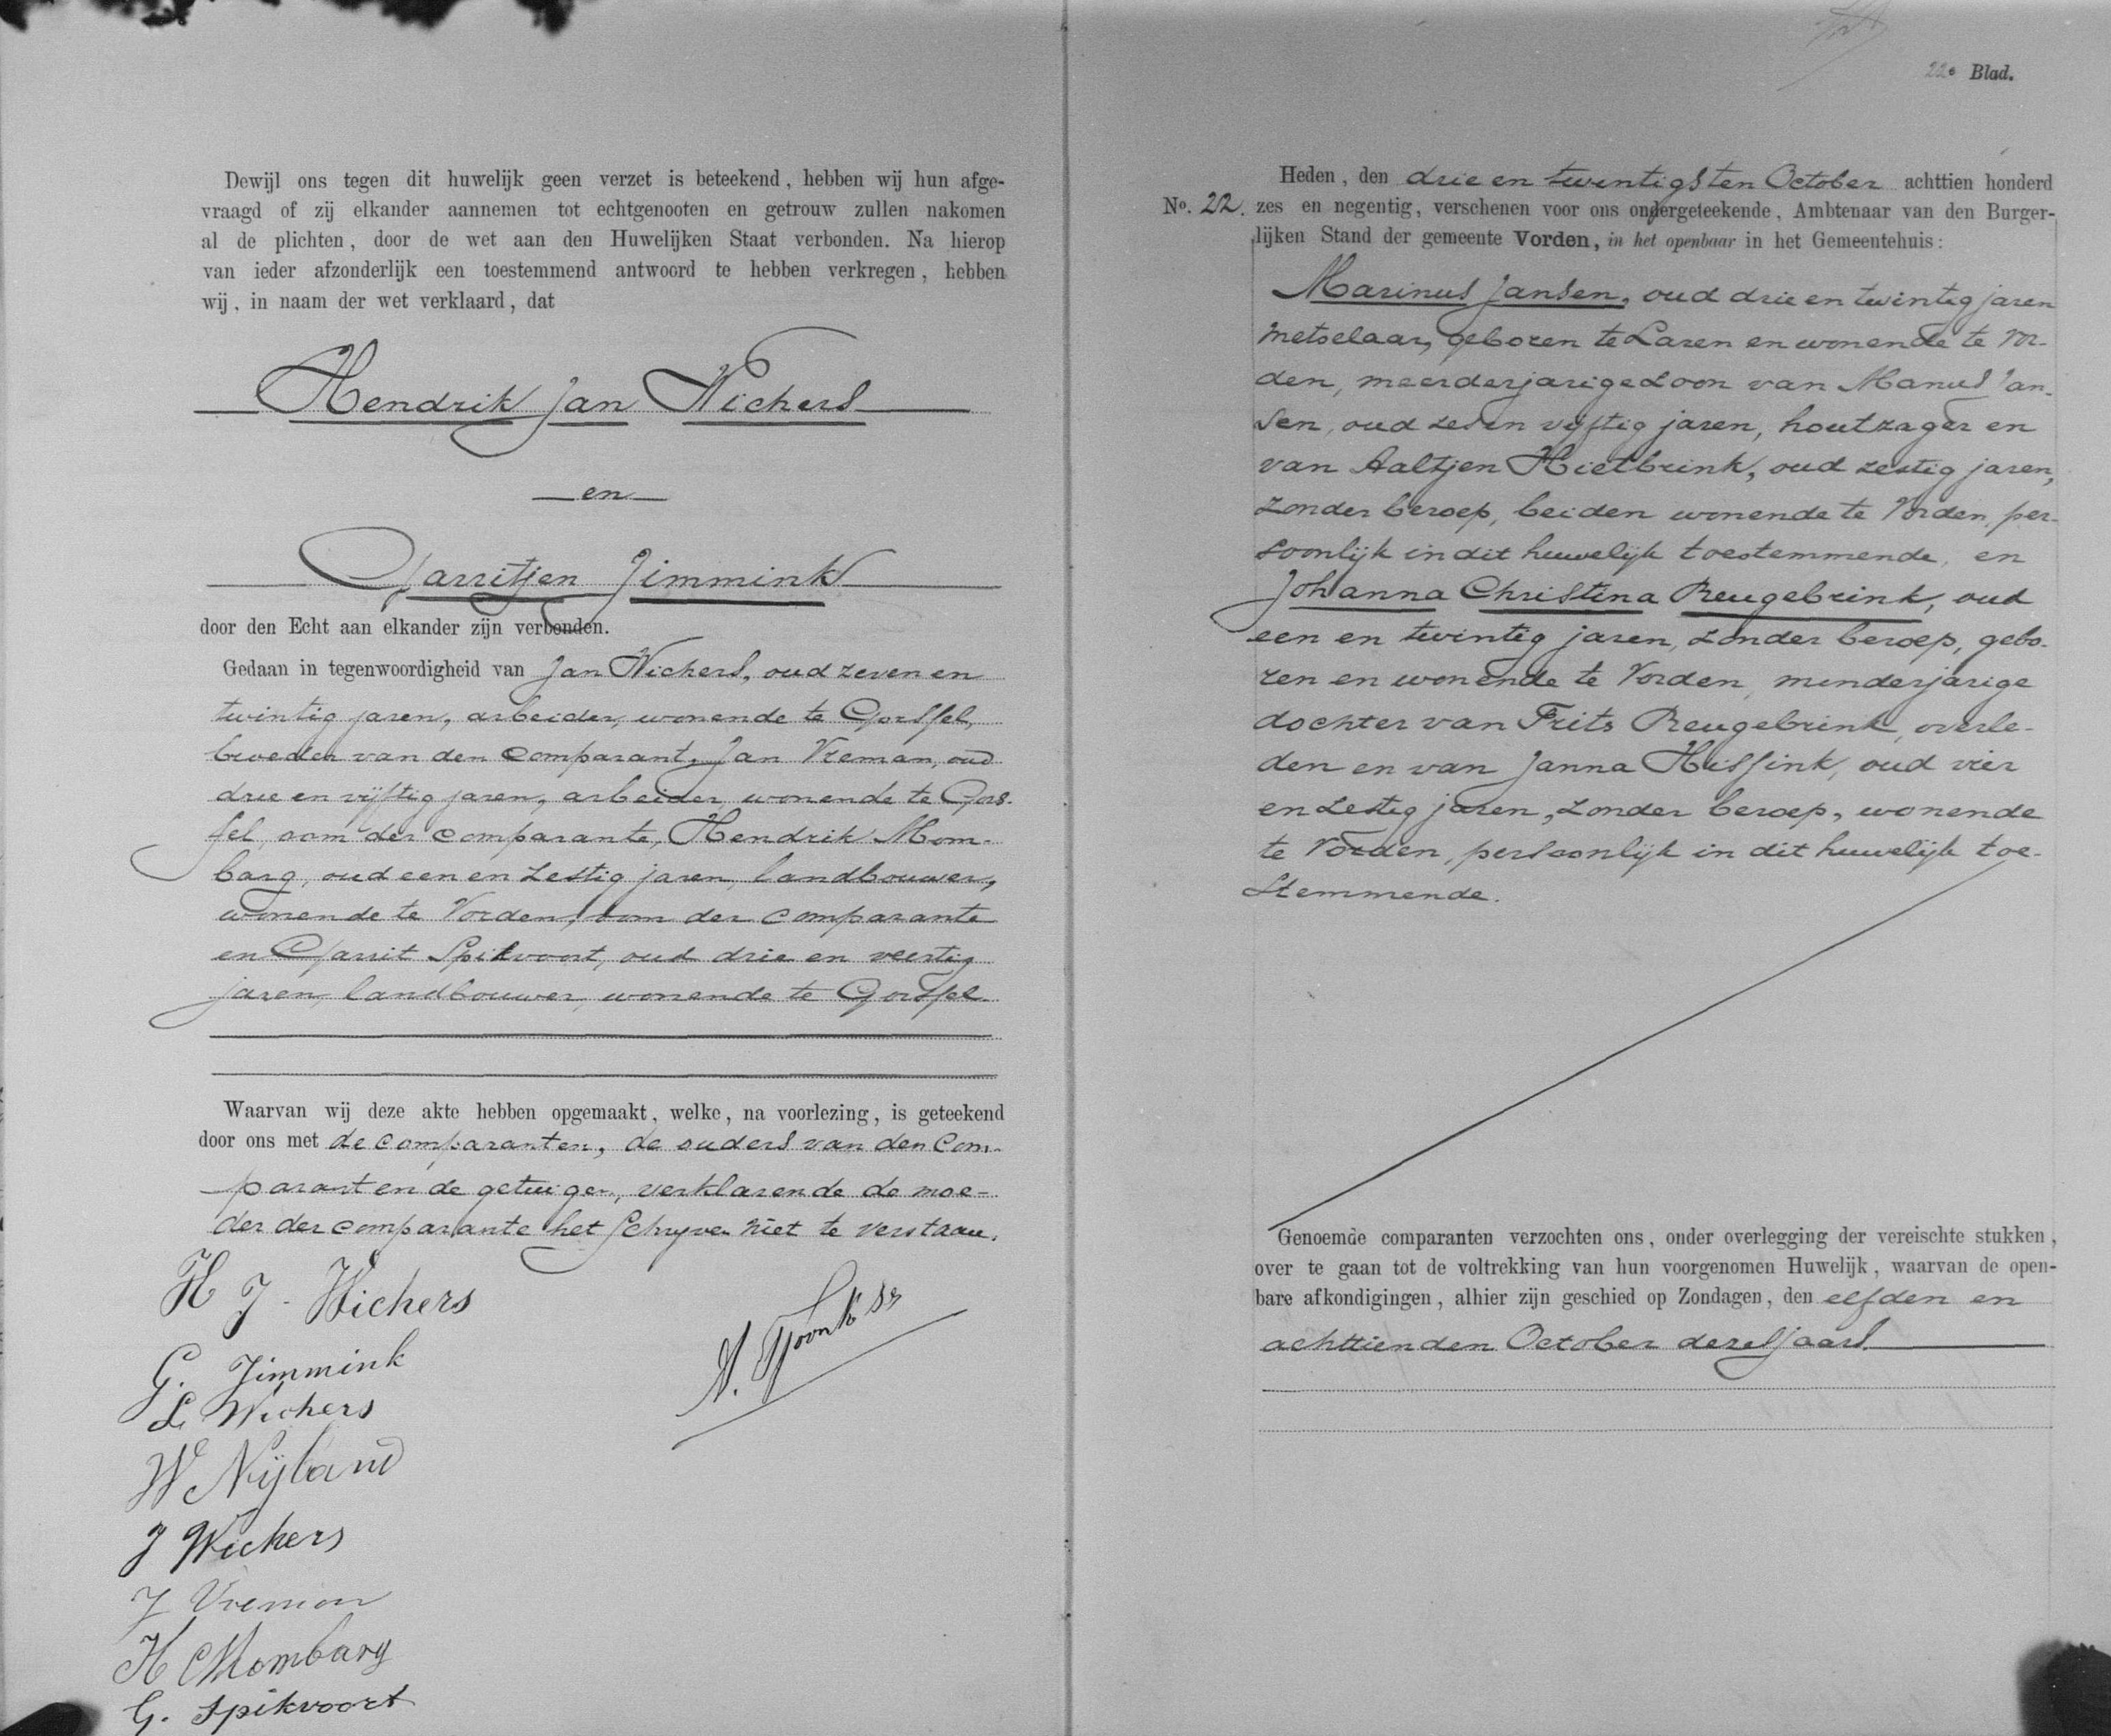 Dewijl ons tegen dit huwelijk geen verzet is beteekend, hebben wij hun afge-
vraagd of zij elkander aannemen tot echtgenooten en getrouw zullen nakomen
al de plichten, door de wet aan den Huwelijken Staat verbonden. Na hierop
van ieder afzonderlijk een toestemmend antwoord te hebben verkregen, hebben
wij, in naam der wet verklaard, dat
Hendrik Jan Wichers
en
Garritjen Jimmink
door den Echt aan elkander zijn verbonden.
Gedaan in tegenwoordigheid van Jan Wichers, oud zeven en
twintig jaren, arbeider, wonende te Gorssel,
broeder van den comparant, Jan Vreman, oud
drie en vijftig jaren, arbeider, wonende te Gors-
sel, oom der comparante, Hendrik Mom-
barg, oud een en zestig jaren, landbouwer,
wonende te Vorden, oom der comparante
en Garrit Spikvoort, oud drie en veertig
jaren, landbouwer, wonende te Gorssel.
Waarvan wij deze akte hebben opgemaakt, welke, na voorlezing, is geteekend
door ons met de comparanten, de ouders van den com-
parant en de getuigen, verklarende de moe-
der der comparante het schryven niet te verstaan.
H J - Wichers
G. Jimmink
L Wichers
W Nijland
J Wichers
J Vreman
H Mombarg
G. Spikvoort
22e Blad.
Heden, den drie en twintigsten October achttien honderd
No. 22. zes en negentig, verschenen voor ons ondergeteekende, Ambtenaar van den Burger-
lijken Stand der gemeente Vorden, in het openbaar in het Gemeentehuis:
Marinus Jansen, oud drie en twintig jaren
metselaar, geboren te Laren en wonende te Vor-
den, meerderjarige zoon van Manus Jan-
sen, oud zeven vijftig jaren, houtzager en
van Aaltjen Hietbrink, oud zestig jaren,
zonder beroep, beiden wonende te Vorden, per-
soonlijk in dit huwelijk toestemmende, en
Johanna Christina Reugebrink, oud
een en twintig jaren, zonder beroep, gebo-
ren en wonende te Vorden, minderjarige
dochter van Frits Reugebrink, overle-
den en van Janna Hissink, oud vier
en zestig jaren, zonder beroep, wonende
te Vorden, persoonlijk in dit huwelijk toe-
stemmende.
Genoemde comparanten verzochten ons, onder overlegging der vereischte stukken,
over te gaan tot de voltrekking van hun voorgenomen Huwelijk, waarvan de open-
bare afkondigingen, alhier zijn geschied op Zondagen, den elfden en
achttienden October dezes jaars.